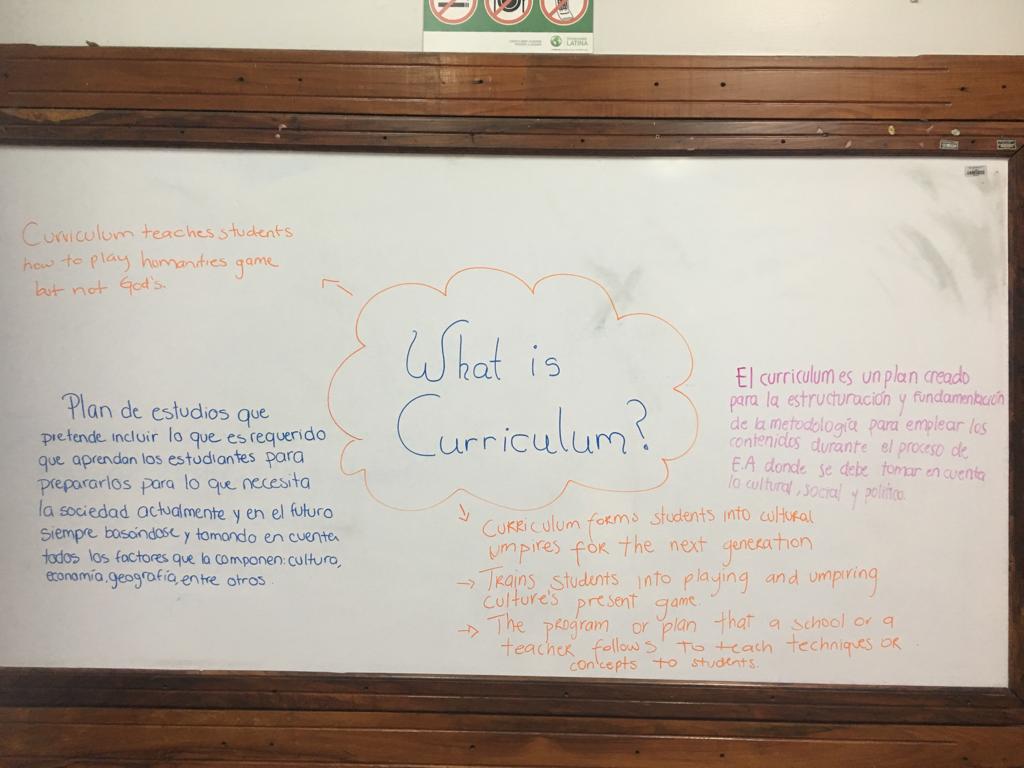 LATINA
Curriculum teaches students
how to play humanities game
but not God's.
What is
Curriculum?
Plan de estudios que
pretende incluir lo que es requerido
que aprendan los estudiantes para
prepararlos para lo que necesita
la sociedad actualmente y en el futuro
siempre basándose y tomando en cuenta
todos los factores que la componen: cultura,
economía, geografía, entre otros.
El curriculum es un plan creado
para la estructuración y fundamentación
de la metodología para emplear los
contenidos durante el proceso de
E.A donde se debe tomar en cuenta
lo cultural, social y político.
Curriculum forms students into cultural
umpires for the next generation
→ Trains students into playing and umpiring
culture's present game.
→ The program or plan that a school or a
teacher follows to teach techniques or
concepts to students.